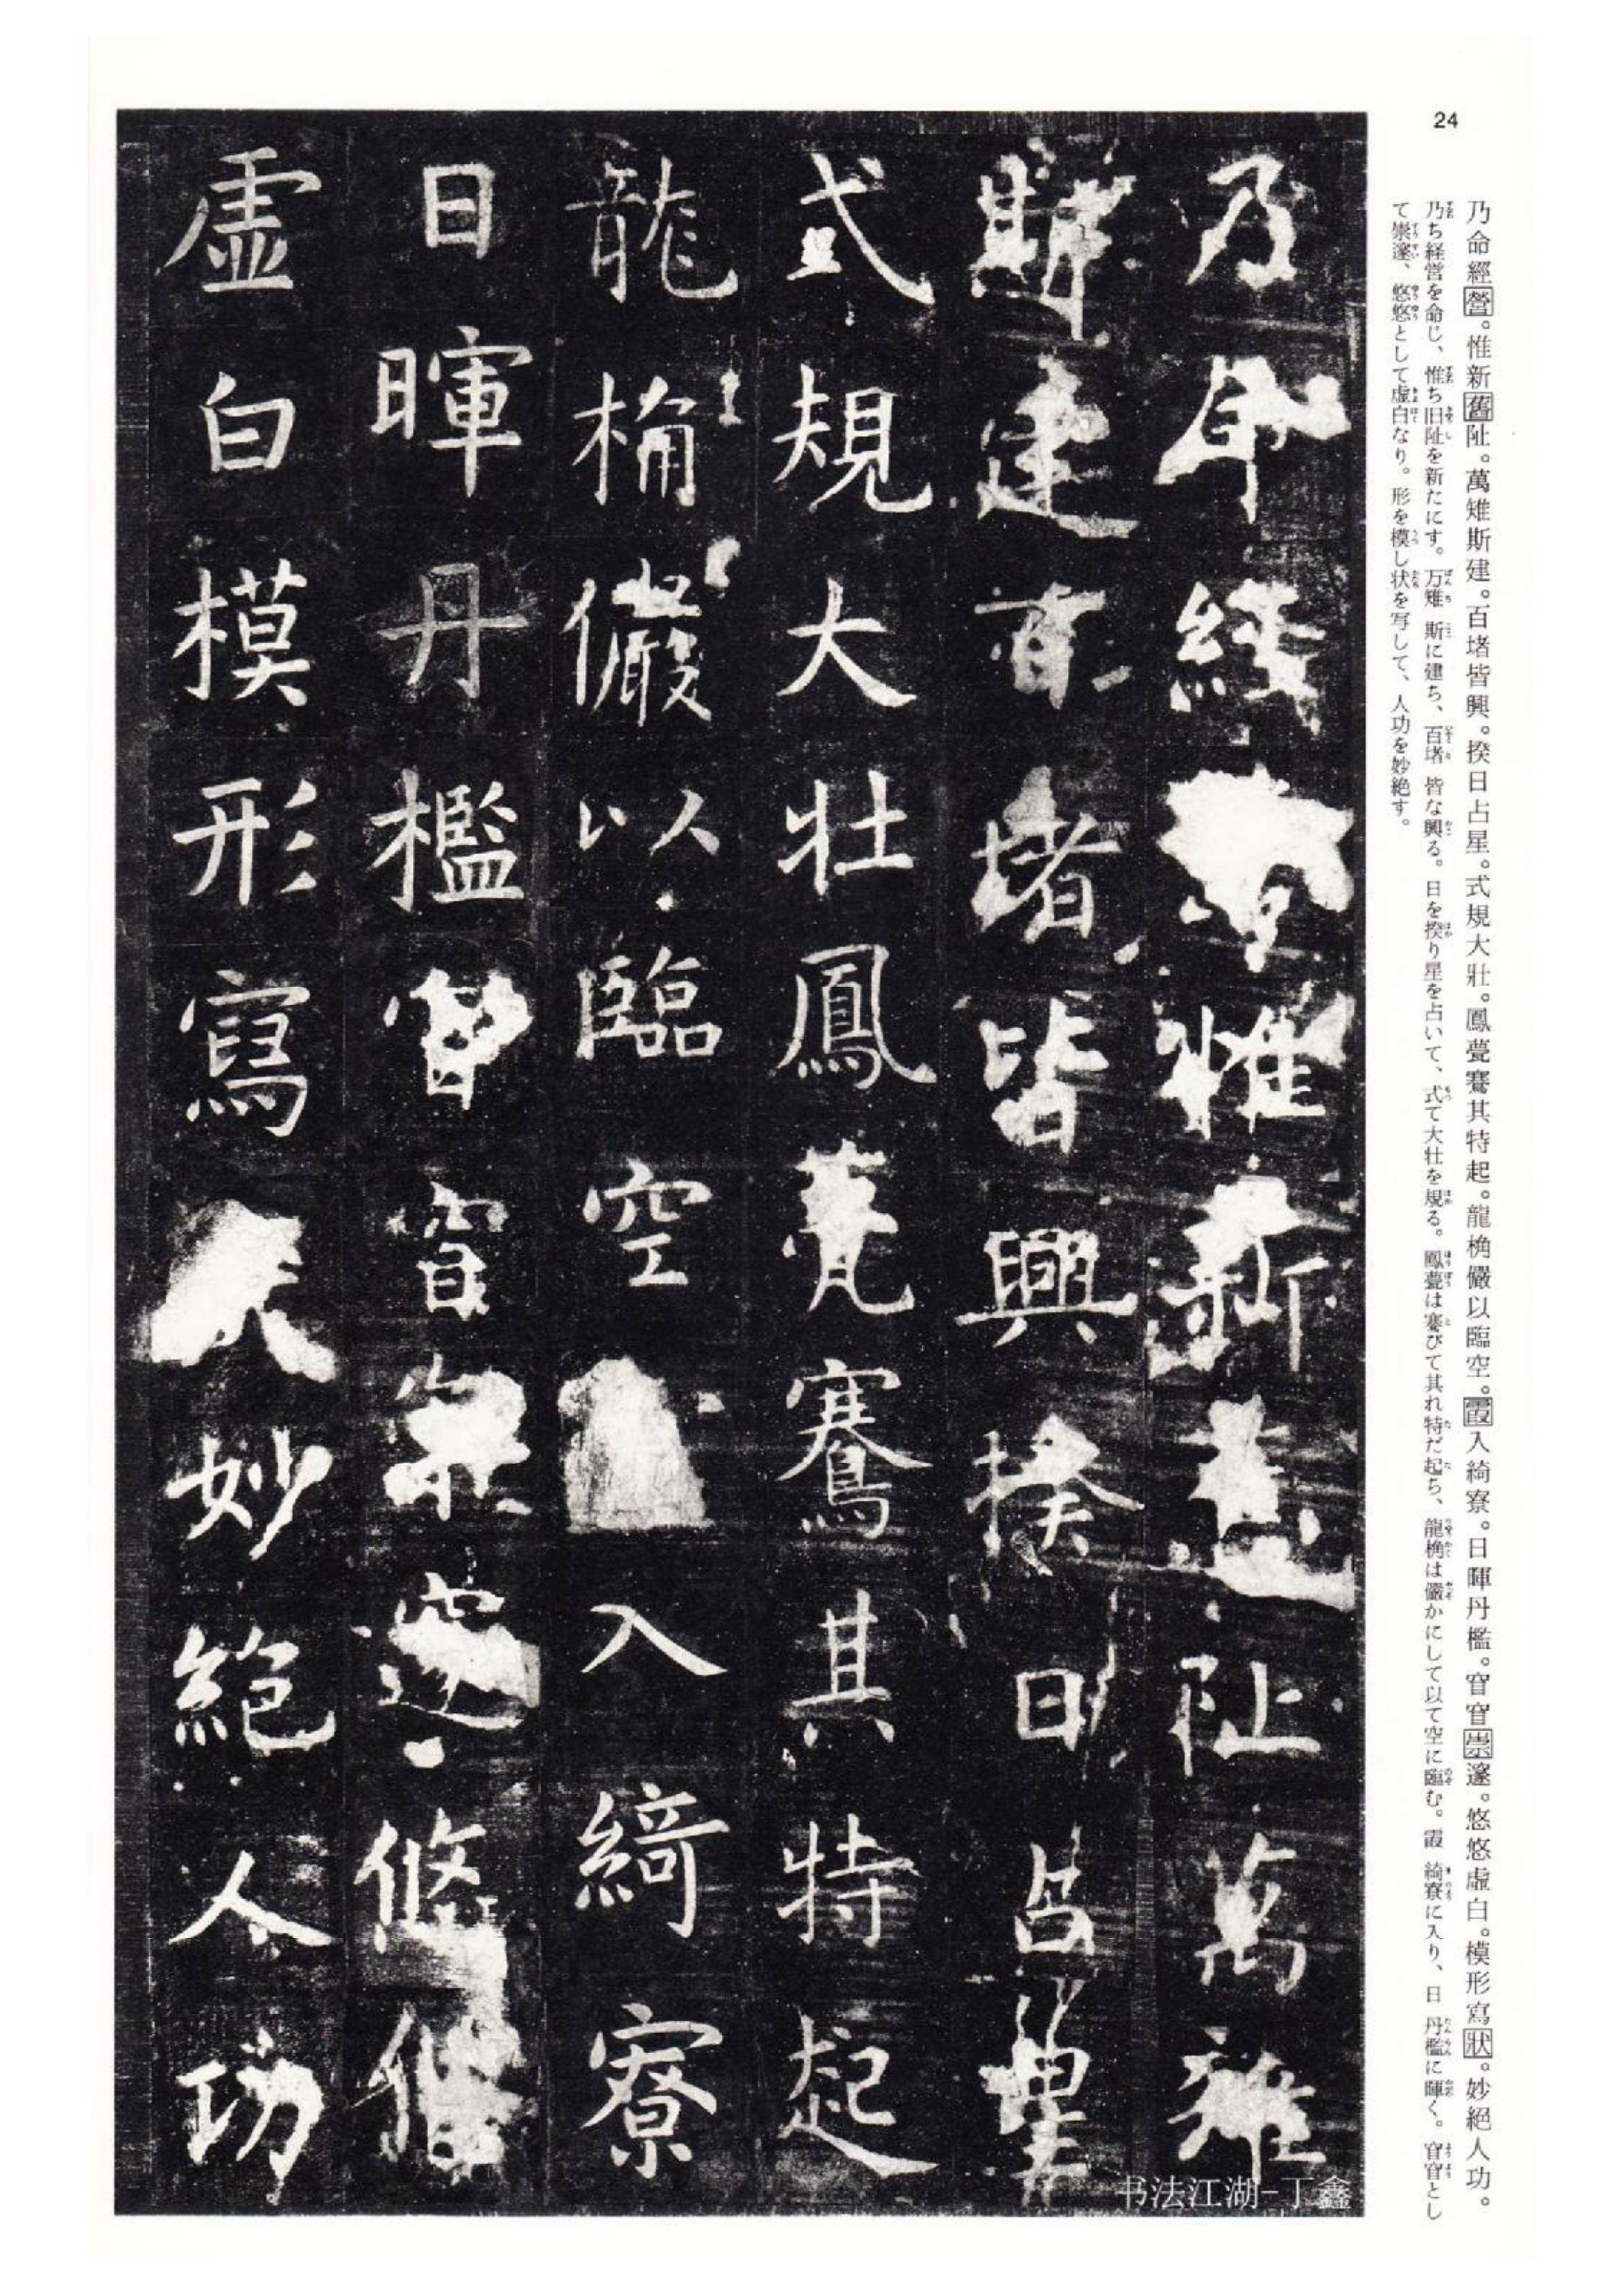 24
乃命經營。惟新舊阯。萬雉斯建。百堵皆興。揆日占星。式規大壯。鳳甍騫其特起。龍桷儼以臨空。霞入綺寮。日暉丹檻。窅窅崇邃。悠悠虛白。模形寫狀。妙絕人功。
乃ち経営を命じ、惟ち旧阯を新たにす。万雉斯に建ち、百堵皆な興る。日を揆り星を占いて、式て大壮を規る。鳳甍は騫びて其れ特だ起ち、龍桷は儼かにして以て空に臨む。霞綺寮に入り、日丹檻に暉く。窅窅とし
て崇邃、悠悠として虚白なり。形を模し状を写して、人功を妙絶す。
乃命經惟新舊阯萬雉
斯建百堵皆興揆日占星
式規大壯鳳甍騫其特起
龍桷儼以臨空入綺寮
日暉丹檻窅窅崇邃悠悠
虛白模形寫妙絕人功
书法江湖-丁鑫